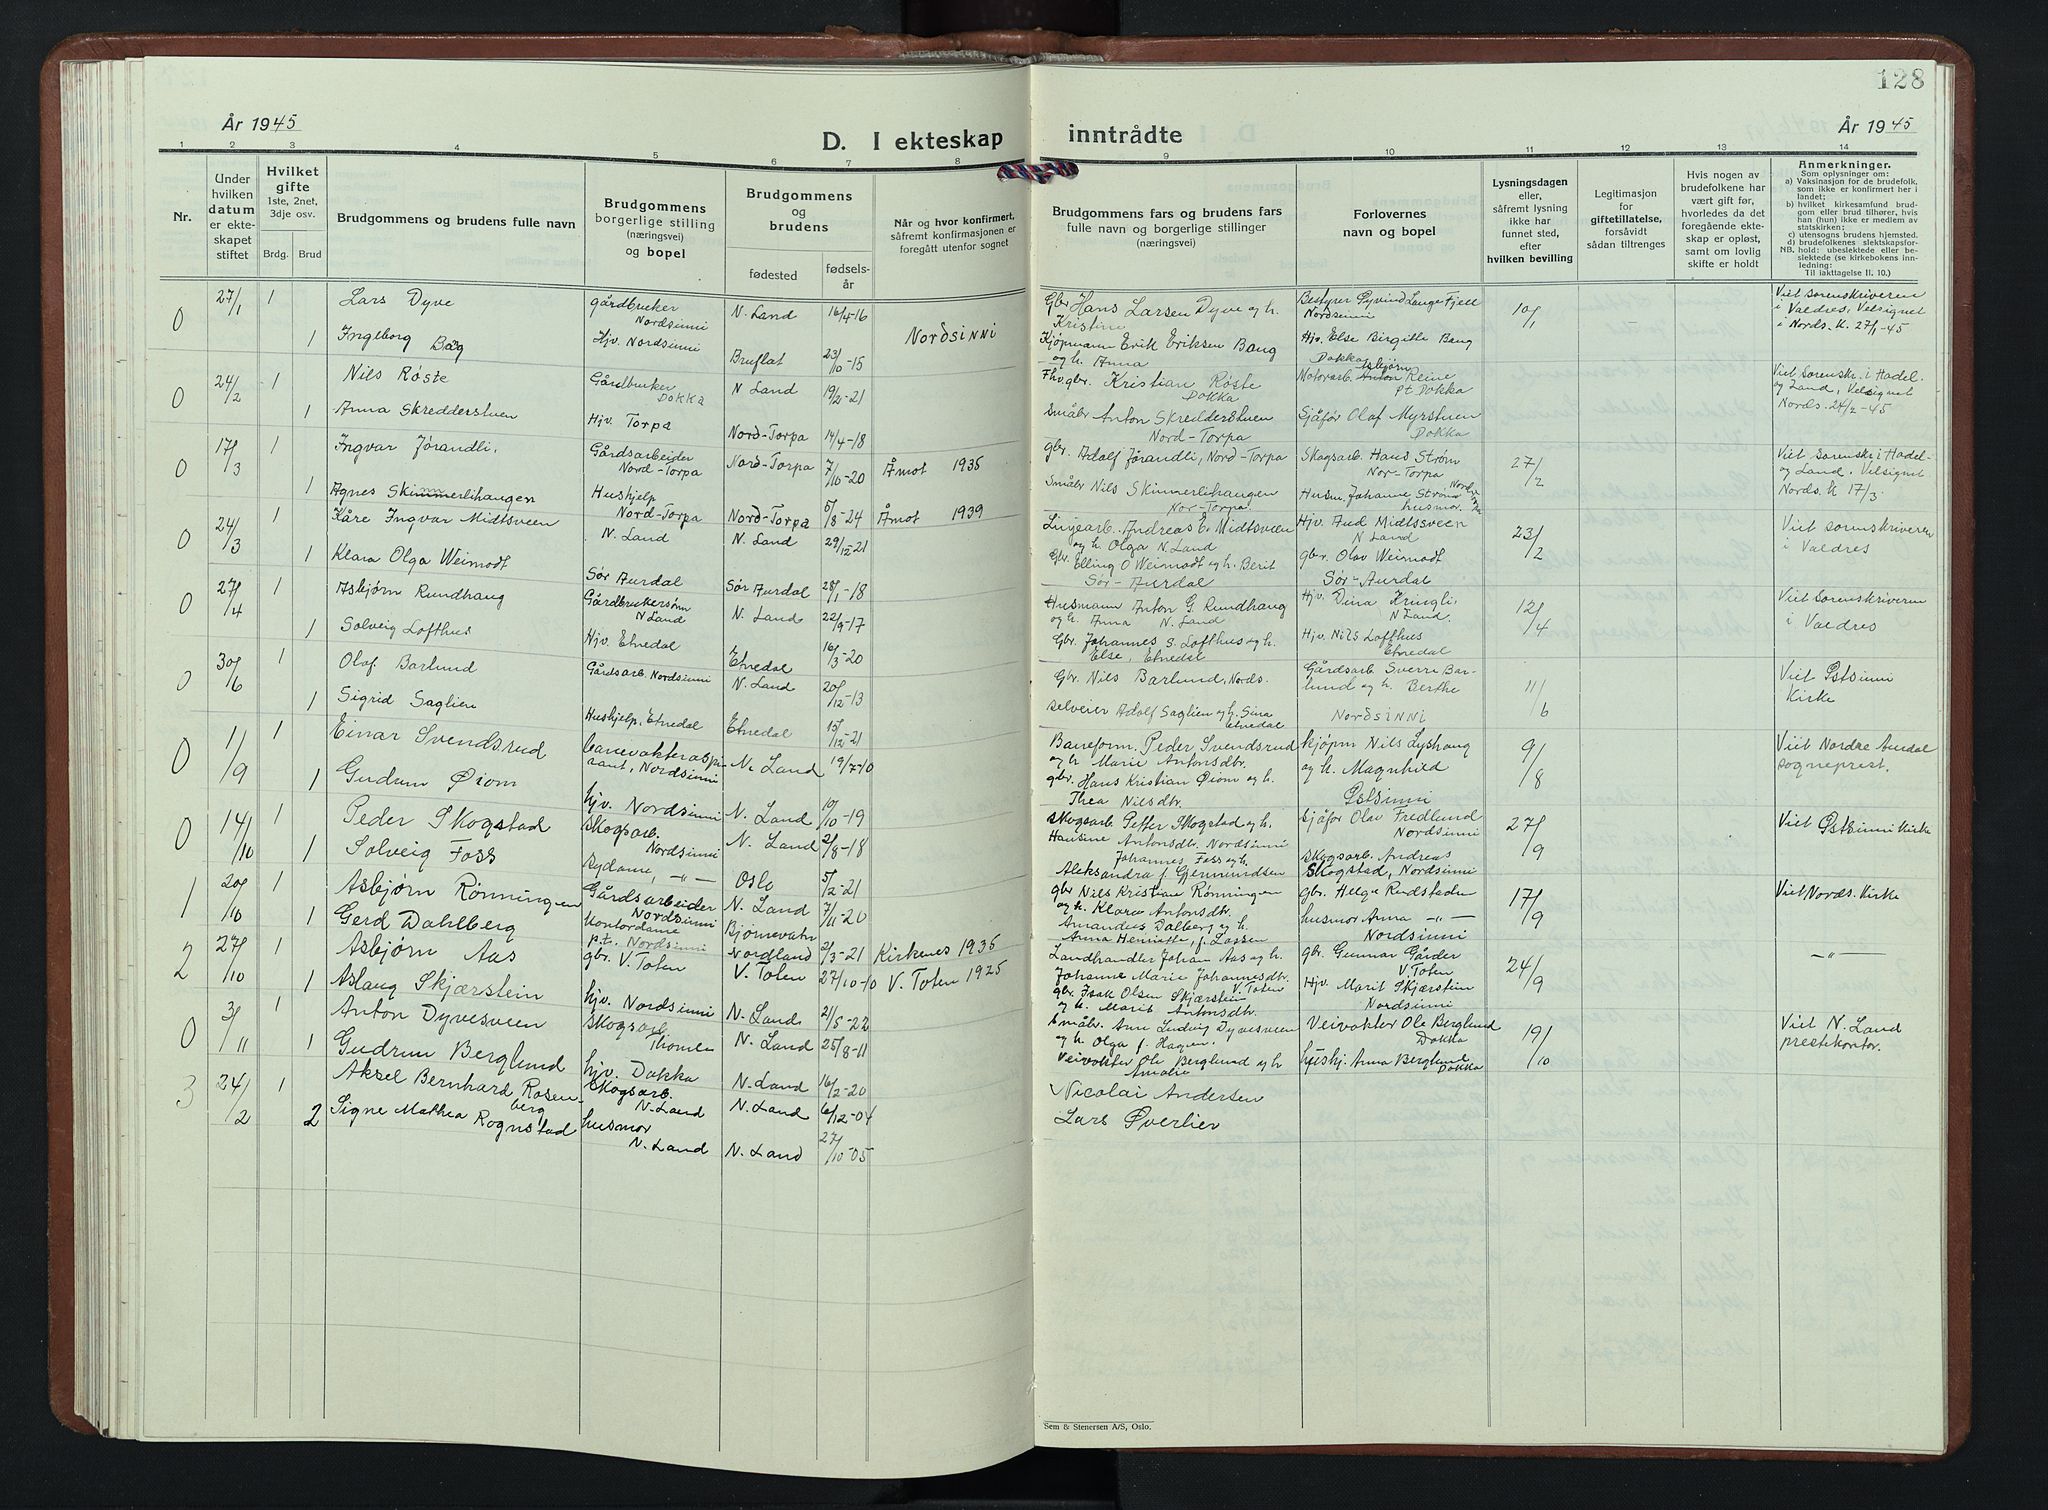 128
År 1945
D. I ekteskap inntrådte
År 1945
1 2 3 4 5 6 7 8 9 10 11 12 13 14
Nr.
Under hvilken datum er ekteskapet stiftet
Hvilket gifte
1ste, 2net, 3dje osv.
Brdg. Brud
Brudgommens og brudens fulle navn
Brudgommens borgerlige stilling (næringsvei) og bopel
Brudgommens og brudens
fødested fødselsår
Når og hvor konfirmert, såfremt konfirmasjonen er foregått utenfor sognet
Brudgommens fars og brudens fars fulle navn og borgerlige stillinger (næringsvei)
Forlovernes navn og bopel
Lysningsdagen eller, såfremt lysning ikke har funnet sted, efter hvilken bevilling
Legitimasjon for giftetillatelse, forsåvidt sådan tiltrenges
Hvis nogen av brudefolkene har vært gift før, hvorledes da det foregående ekteskap er opløst, samt om lovlig skifte er holdt
Anmerkninger.
Som oplysninger om:
a) Vaksinasjon for de brudefolk, som ikke er konfirmert her i landet;
b) hvilket kirkesamfund brudgom eller brud tilhører, hvis han (hun) ikke er medlem av statskirken;
c) utensogns brudens hjemsted.
d) brudefolkenes slektskapsforhold: ubeslektede eller beslektede (se kirkebokens innledning:
NB. Til iakttagelse II. 10.)
0 27/1 1 Lars Dyve gårdbruker Nordsinni N. Land 16/4-16 Gbr. Hans Larsen Dyve og h. Kristine Bestyrer Øyvind Lange Fjell Nordsinni 10/1 Viet sorenskriveren i Valdres, Velsignet i Nords. K. 27/1-45
1 Ingeborg Bag Hjv. Nordsinni Bruflat 23/10-15 Nordsinni Kjøpmann Erik Eriksen Bang og h. Anna Hjv. Else Birgitte Bang Dokka
0 24/2 1 Nils Røste Gårdbruker Dokka N Land 19/2-21 Fhv. gbr. Kristian Røste Dokka Motorarb. Asbjørn Reine Pt Dokka Viet Sorenskr. i Hadel- og Land, Velsignet Nords. 24/2-45
1 Anna Skredderstuen Hjv. Torpa Nord-Torpa 14/4-18 Småbr Anton Skredderstuen Nord-Torpa Sjåfør Olaf Myrstuen Dokka
0 17/3 1 Ingvar Jørandli, Gårdsarbeider Nord-Torpa Nord-Torpa 7/10-20 Åmot 1935 gbr. Adolf Jørandli, Nord-Torpa Skogsarb. Hans Strøm Nor-Torpa 27/2 Viet sorenskr i Hadel- og Land. Velsignet Nords. K 17/3.
1 Agnes Skimmerlihaugen Hushjelp Nord-Torpa Nord-Torpa 5/8-24 Åmot 1939 Småbr Nils Skimmerlihaugen Nor-Torpa. Husm. Johanne Strøm husmor.
0 24/3 1 Kåre Ingvar Midtsveen N. Land N. Land 29/12-21 Linjearb. Andreas E. Midtsveen og h. Olga N. Land Hjv. Aud Midtsveen N Land 23/2 Viet sorenskriveren i Valdres
1 Klara Olga Weimodt Sør Aurdal Sør Aurdal 28/1-18 Gbr. Elling O Weimodt og h. Berit Sør-Aurdal gbr. Olav Weimodt Sør-Aurdal
0 27/4 1 Asbjørn Rundhaug Gårdbrukersønn N Land N. Land 22/9-17 Husmann Anton G. Rundhaug og h. Anna N. Land Hjv. Dina Kringli N Land. 12/4 Viet Sorenskriveren i Valdres
1 Solveig Lofthus Hjv. Etnedal Etnedal 16/3-20 Gbr. Johannes S. Lofthus og h. Else, Etnedal Hjv. Nils Lofthus Etnedal
0 30/6 1 Olaf Barlund Gårdsarb. Nordsinni N. Land 20/12-13 Gbr. Nils Barlund, Nords. Gårdsarb Sverre Barlund og h. Berthe Nordsinni 11/6 Viet Østsinni Kirke
1 Sigrid Saglien Hushjelp, Etnedal Etnedal 15/12-21 selveier Adolf Saglien og h. Sina Etnedal
0 1/9 1 Einar Svendsrud banevokteraspirant, Nordsinni N. Land 19/7-10 Baneform. Peder Svendsrud og h. Marie Antonsdtr. kjøpm Nils Lyshaug og h. Magnhild Østsinni 9/8 Viet Nordre Aurdal sogneprest.
1 Gudrun Øiom hjv. Nordsinni N. Land 10/10-19 gbr. Hans Kristian Øiom og h. Thea Nilsdtr.
0 14/10 1 Peder Skogstad skogsarb. Nordsinni N. Land 2/8-18 skogsarb Petter Skogstad og h. Hansine Antonsdtr. Nordsinni sjåfør Olav Fredlund Nordsinni 27/9 Viet Østsinni Kirke
1 Solveig Foss sydame, -"- Oslo 5/2-21 Johannes Foss og h. Aleksandra f. Gjermundsen skogsarb. Andreas Skogstad, Nordsinni
1 20/10 1 Asbjørn Rønningen Gårdsarbeider Nordsinni N. Land 7/11-20 gbr Nils Kristian Rønningen og h. Klara Antonsdtr. gbr. Helge Rudstaden 17/9 Viet Nords. Kirke
1 Gerd Dahlberg kontordame p.t. Nordsinni Bjørnevatn Nordland 2/3-21 Kirkenes 1936 Amandus Dalberg og h. Anna Henriette, f. Lassen husmor Anna -"- Nordsinni
2 27/10 1 Asbjørn Aas gbr. V. Toten V. Toten 27/10-10 V. Toten 1925 Landhandler Johan Aas og h. Johanne Marie Johannesdtr. V. Toten gbr. Gunnar Gårder V. Toten 24/9 -"-
1 Aslaug Skjærstein hjv. Nordsinni N. Land 2/5-22 gbr. Isak Olsen Skjærstein og h. Marie Antonsdtr. Hjv. Marit Skjærstein Nordsinni
0 3/11 1 Anton Dyvesveen skogsarb Thomle N. Land 25/8-11 Småbr. Ludvig Dyvesveen og h. Olga f. Hagen. Veivokter Ole Berglund Dokka 19/10 Viet N. Land prestekontor.
1 Gudrun Berglund hjv. Dokka N. Land 16/2-20 Veivokter Ole Berglund og h Amalie hushj. Anna Berglund Dokka
3 24/2 1 Aksel Bernhard Rosenberg skogsarb. N. Land N. Land 6/12-04 Nicolai Andersen
2 Signe Mathea Rognstad husmor N. Land N. Land 27/10-05 Lars Øverlier
Sem & Stenersen A/S, Oslo.